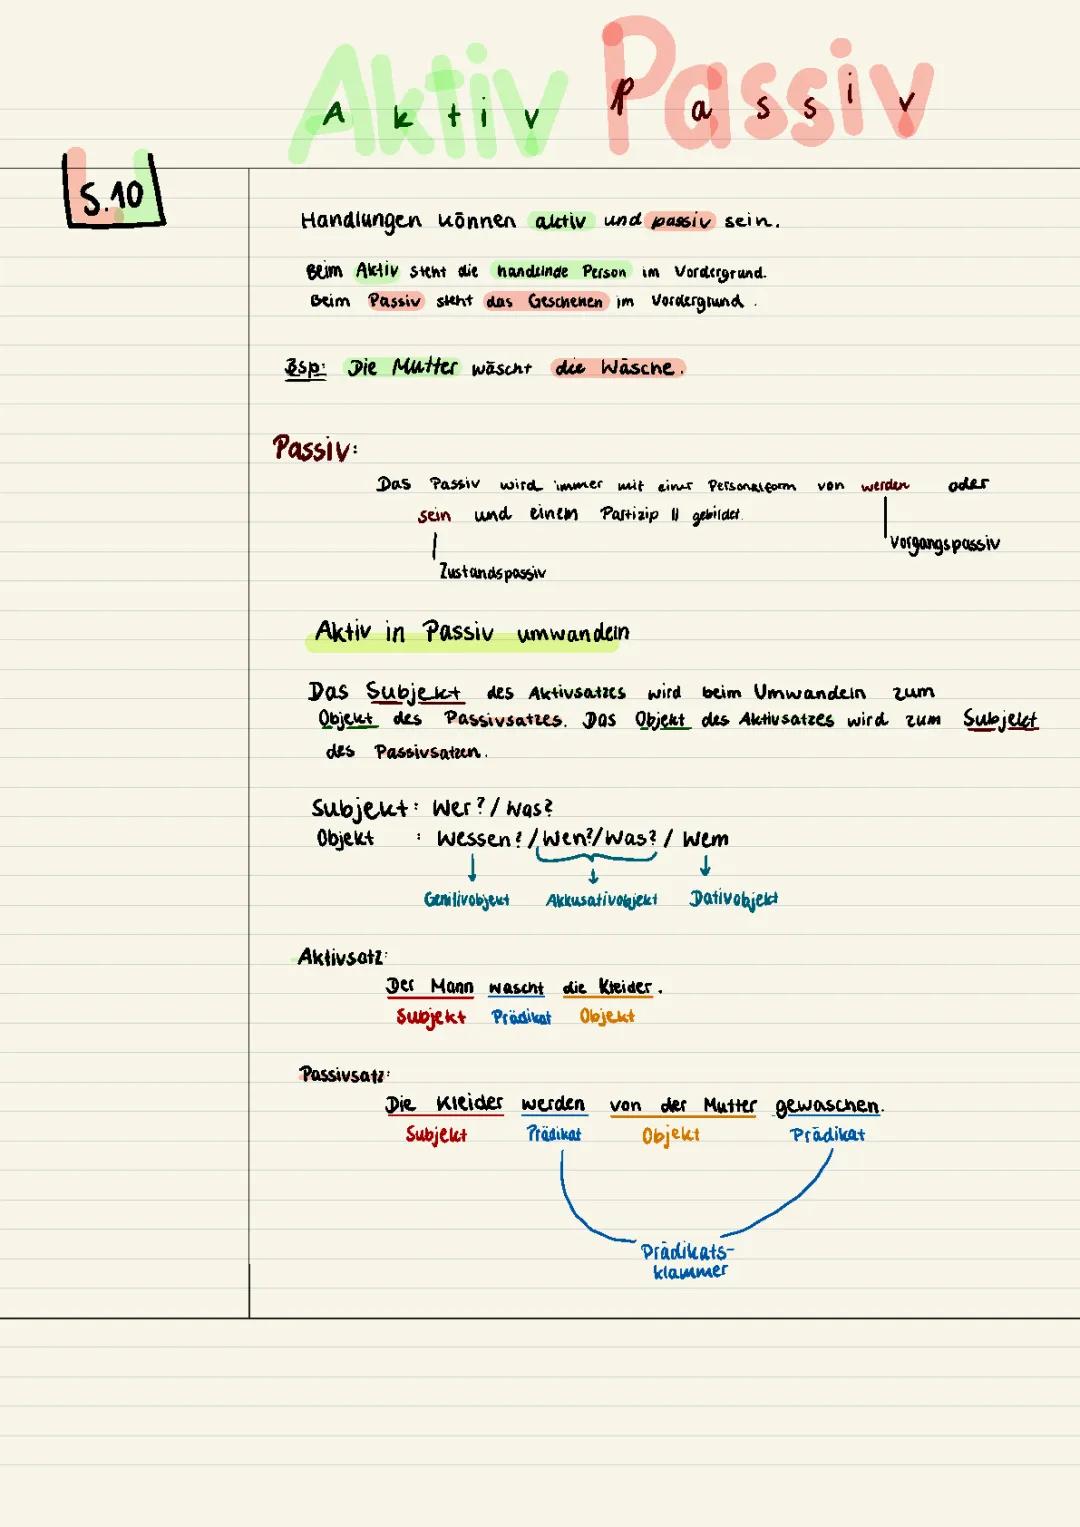 Aktiv Passiv
A k t i v P a s s i v
S.10
Handlungen können aktiv und passiv sein.
Beim Aktiv steht die handelnde Person im Vordergrund.
Beim Passiv steht das Geschehen im Vordergrund.
Bsp: Die Mutter wäscht die Wäsche.
Passiv:
Das Passiv wird immer mit einer Personalform von werden oder
sein und einem Partizip II gebildet.
Vorgangspassiv
Zustandspassiv
Aktiv in Passiv umwandeln
Das Subjekt des Aktivsatzes wird beim Umwandeln zum
Objekt des Passivsatzes. Das Objekt des Aktivsatzes wird zum Subjekt
des Passivsatzen.
Subjekt: Wer?/Was?
Objekt : Wessen?/Wen?/Was?/Wem
Genitivobjekt Akkusativobjekt Dativobjekt
Aktivsatz:
Der Mann wascht die Kleider.
Subjekt Prädikat Objekt
Passivsatz:
Die Kleider werden von der Mutter gewaschen.
Subjekt Prädikat Objekt Prädikat
Prädikats-
klammer